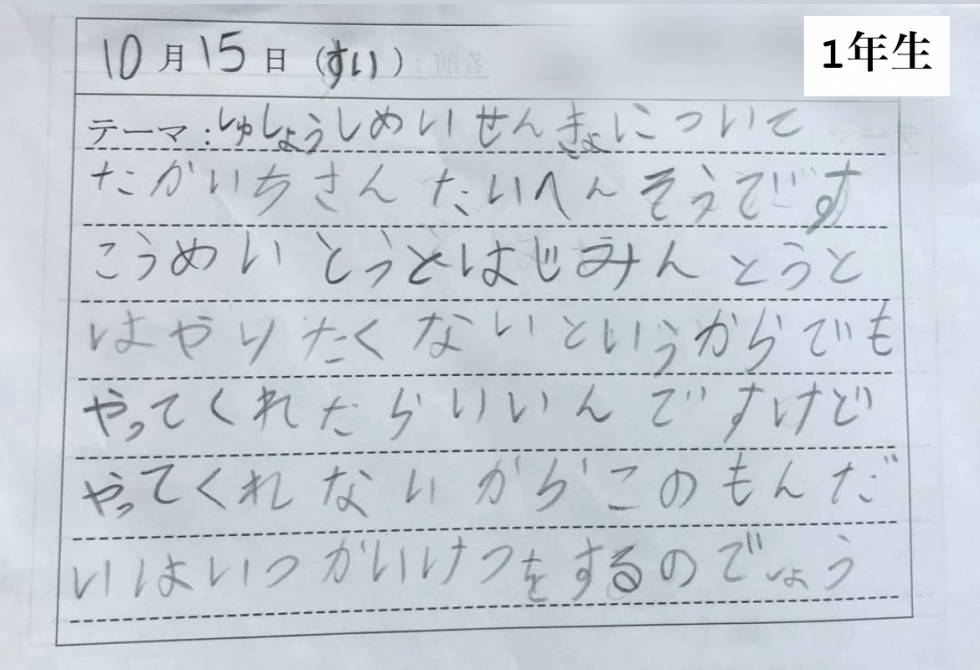 1年生
10月15日(すい)
テーマ:しゅしょうしめいせんきょについて
たかいちさんたいへんそうです
こうめいとうとはじみんとうと
はやりたくないというからでも
やってくれたらいいんですけど
やってくれないからこのもんだ
いはいつかいけつをするのでしょう